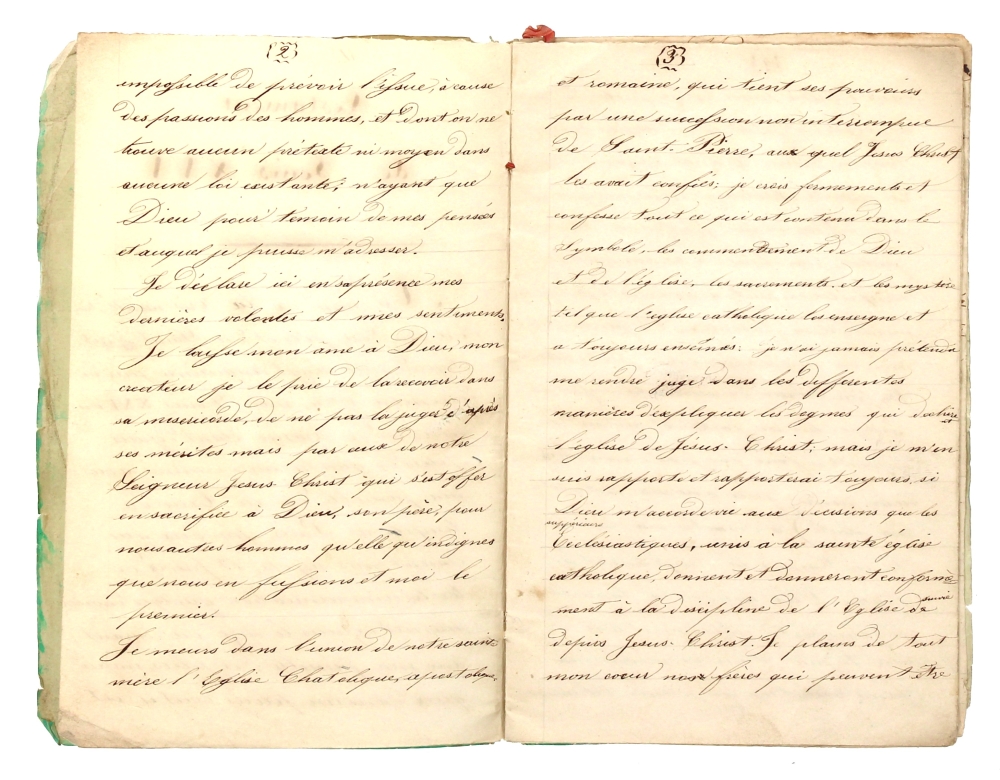 2
impossible de prévoir l'issue, à cause
des passions des hommes, et dont on ne
trouve aucun prétexte ni moyen dans
aucune loi existante; n'ayant que
Dieu pour temoin de mes pensées
et auquel je puisse m'adresser.
Je déclare ici en sa présence mes
dernières volontés et mes sentiments,
Je laisse mon âme à Dieu, mon
createur je le prie de la recevoir dans
sa misericorde, de ne pas la juger d'après
ses mérites mais par ceux de notre
Seigneur Jesus-Christ qui s'est offer
en sacrifice à Dieu, son père, pour
nous autres hommes qu'elle qu'indignes
que nous en fussions et moi le
premier.
Je meurs dans l'union de notre sainte
mère l'Eglise Chatolique, apostolique,
3
et romaine, qui tient ses pouvoirs
par une succession non interrompue
de Saint-Pierre, aux quel Jesus Christ
les avait confiés; je crois fermements et
confesse tout ce qui est contenu dans le
symbole, les commentement de Dieu
et de l'église, les sacrements, et les mystère
tel que l'eglise catholique les enseigne et
a toujours enseinés: je n'ai jamais prétendu
me rendre juge dans les differentes
manières d'expliquer les dogmes qui dechire
l'eglise de Jésus-Christ; mais je m'en
suis rapporté et rapporterai toujours, si
Dieu m'accorde vie aux décisions que les
suppérieurs
Ecclésiastiques, unis à la sainte église
catholique, donnent et donneront conformé
ment à la discipline de l'Eglise suivie
depuis Jesus-Christ. Je plains de tout
mon coeur nos frères qui peuvent être